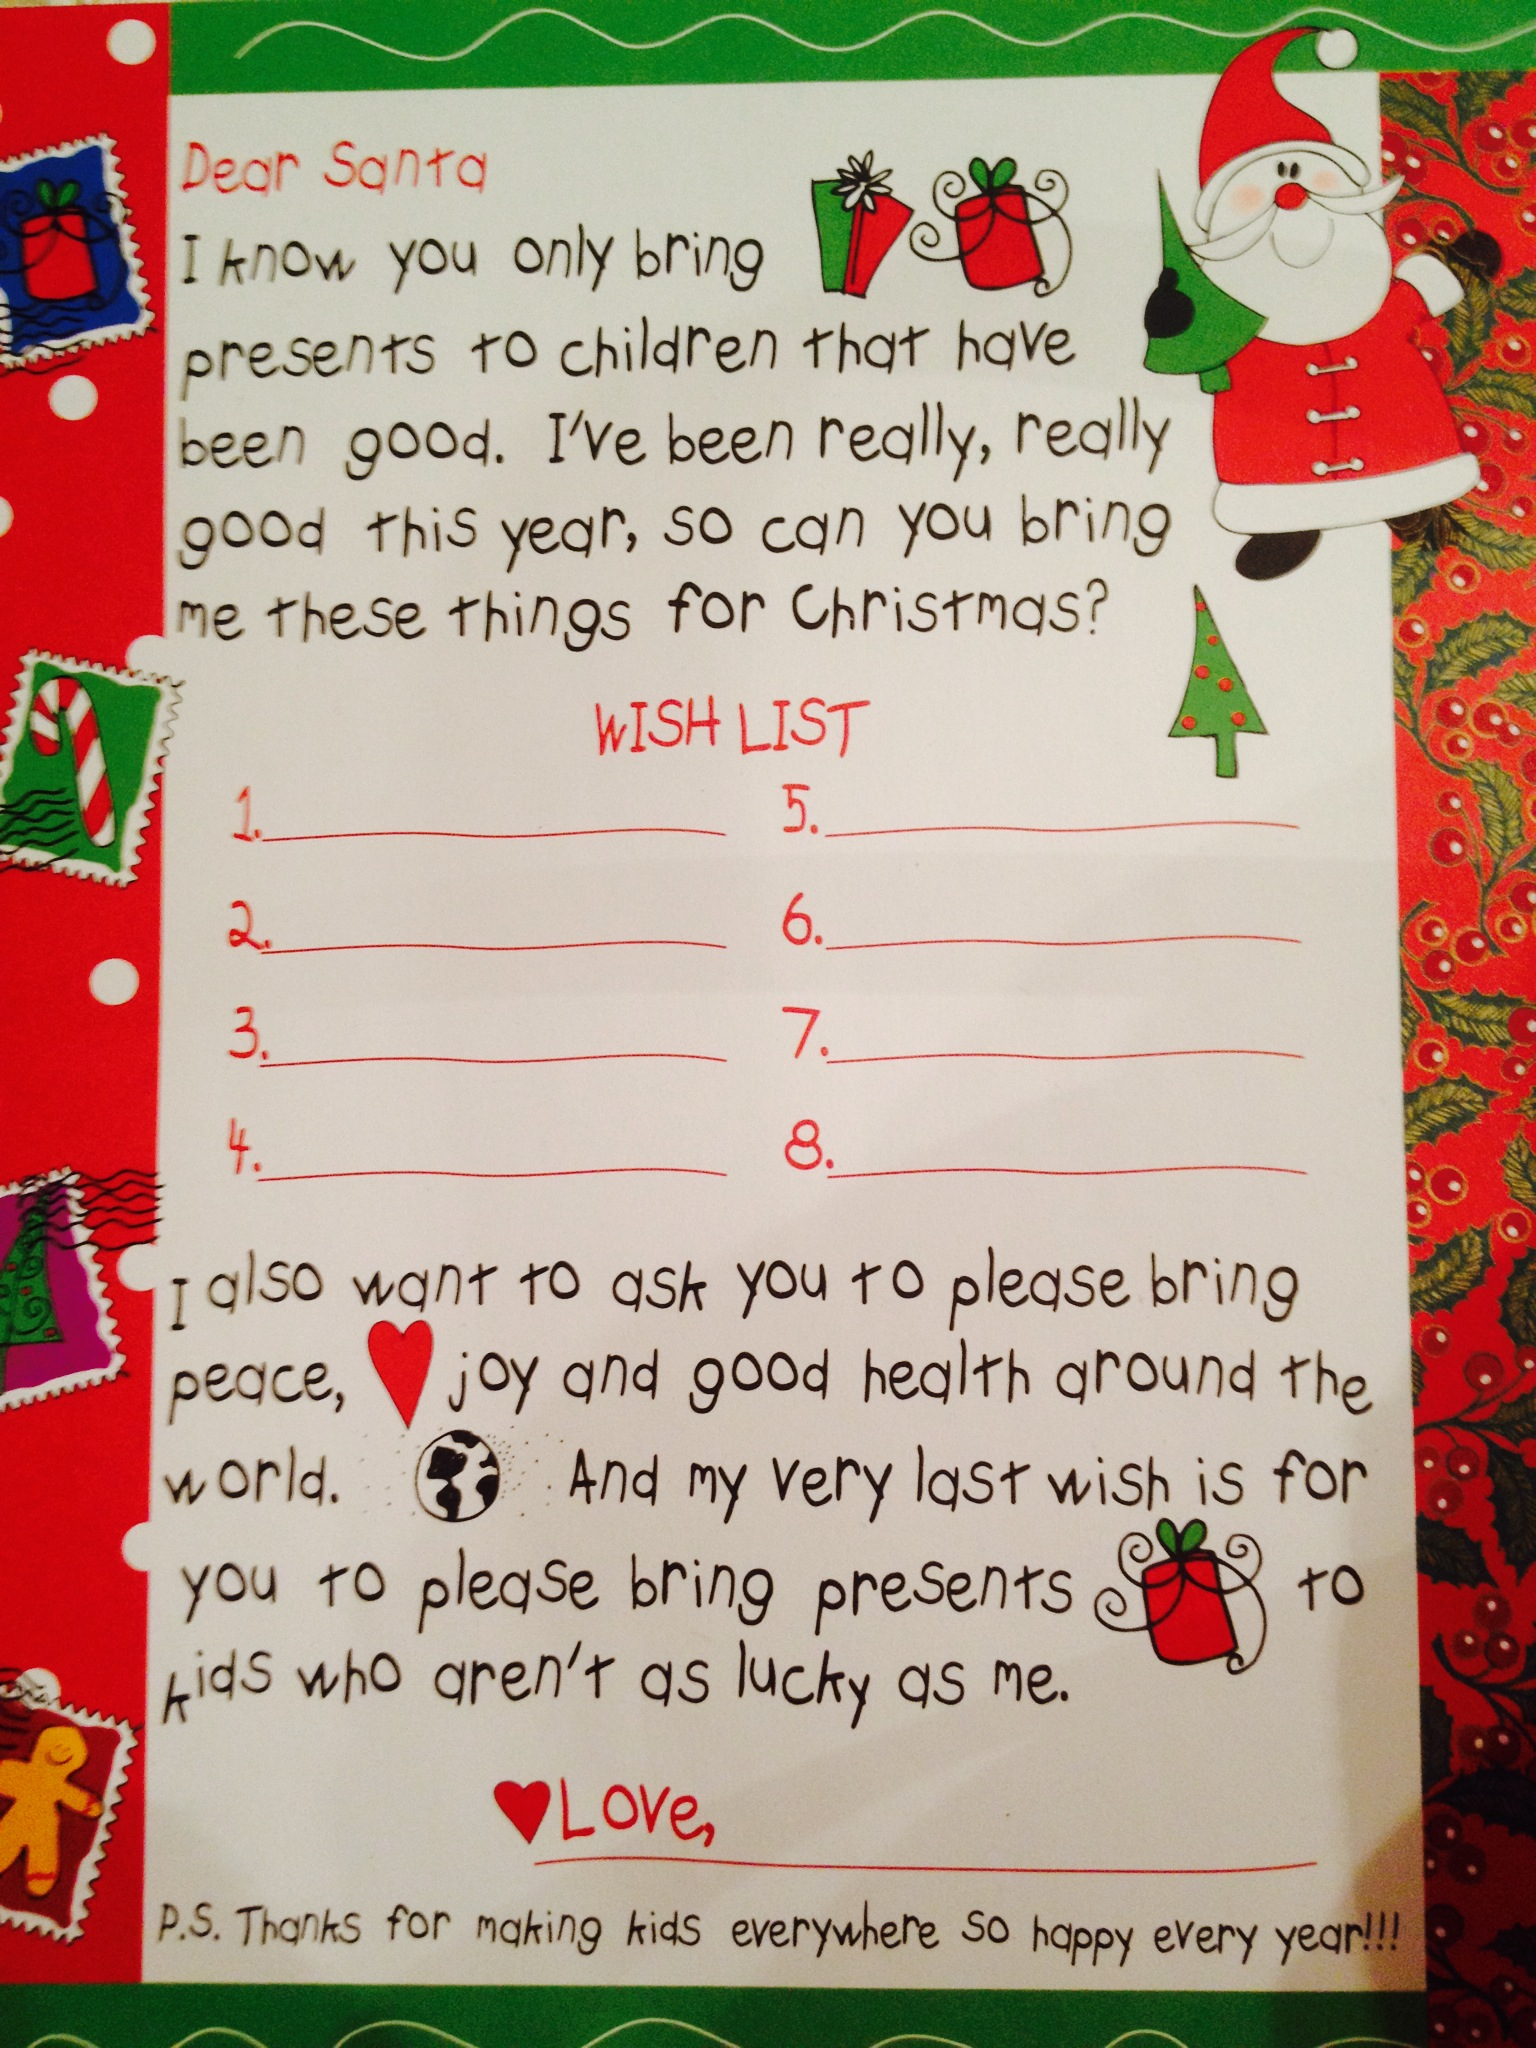 Dear Santa
I know you only bring
presents to children that have
been good. I've been really, really
good this year, so can you bring
me these things for Christmas?
WISH LIST
1. 5.
2. 6.
3. 7.
4. 8.
I also want to ask you to please bring
peace, joy and good health around the
world. And my very last wish is for
you to please bring presents to
kids who aren't as lucky as me.
Love,
P.S. Thanks for making kids everywhere so happy every year!!!